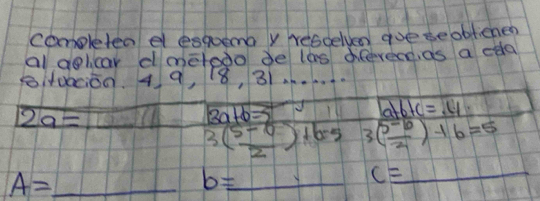 completen el esquema y resuelven que se obtienen
al aplicar el método de las diferencias a esta
situación. 4, 9, 18, 31.......
2a= 3a+b=5 a+b+c=4
3(5-b/2)+b=5 3(5-b/2)+b=5
A=______ b=______ c=______